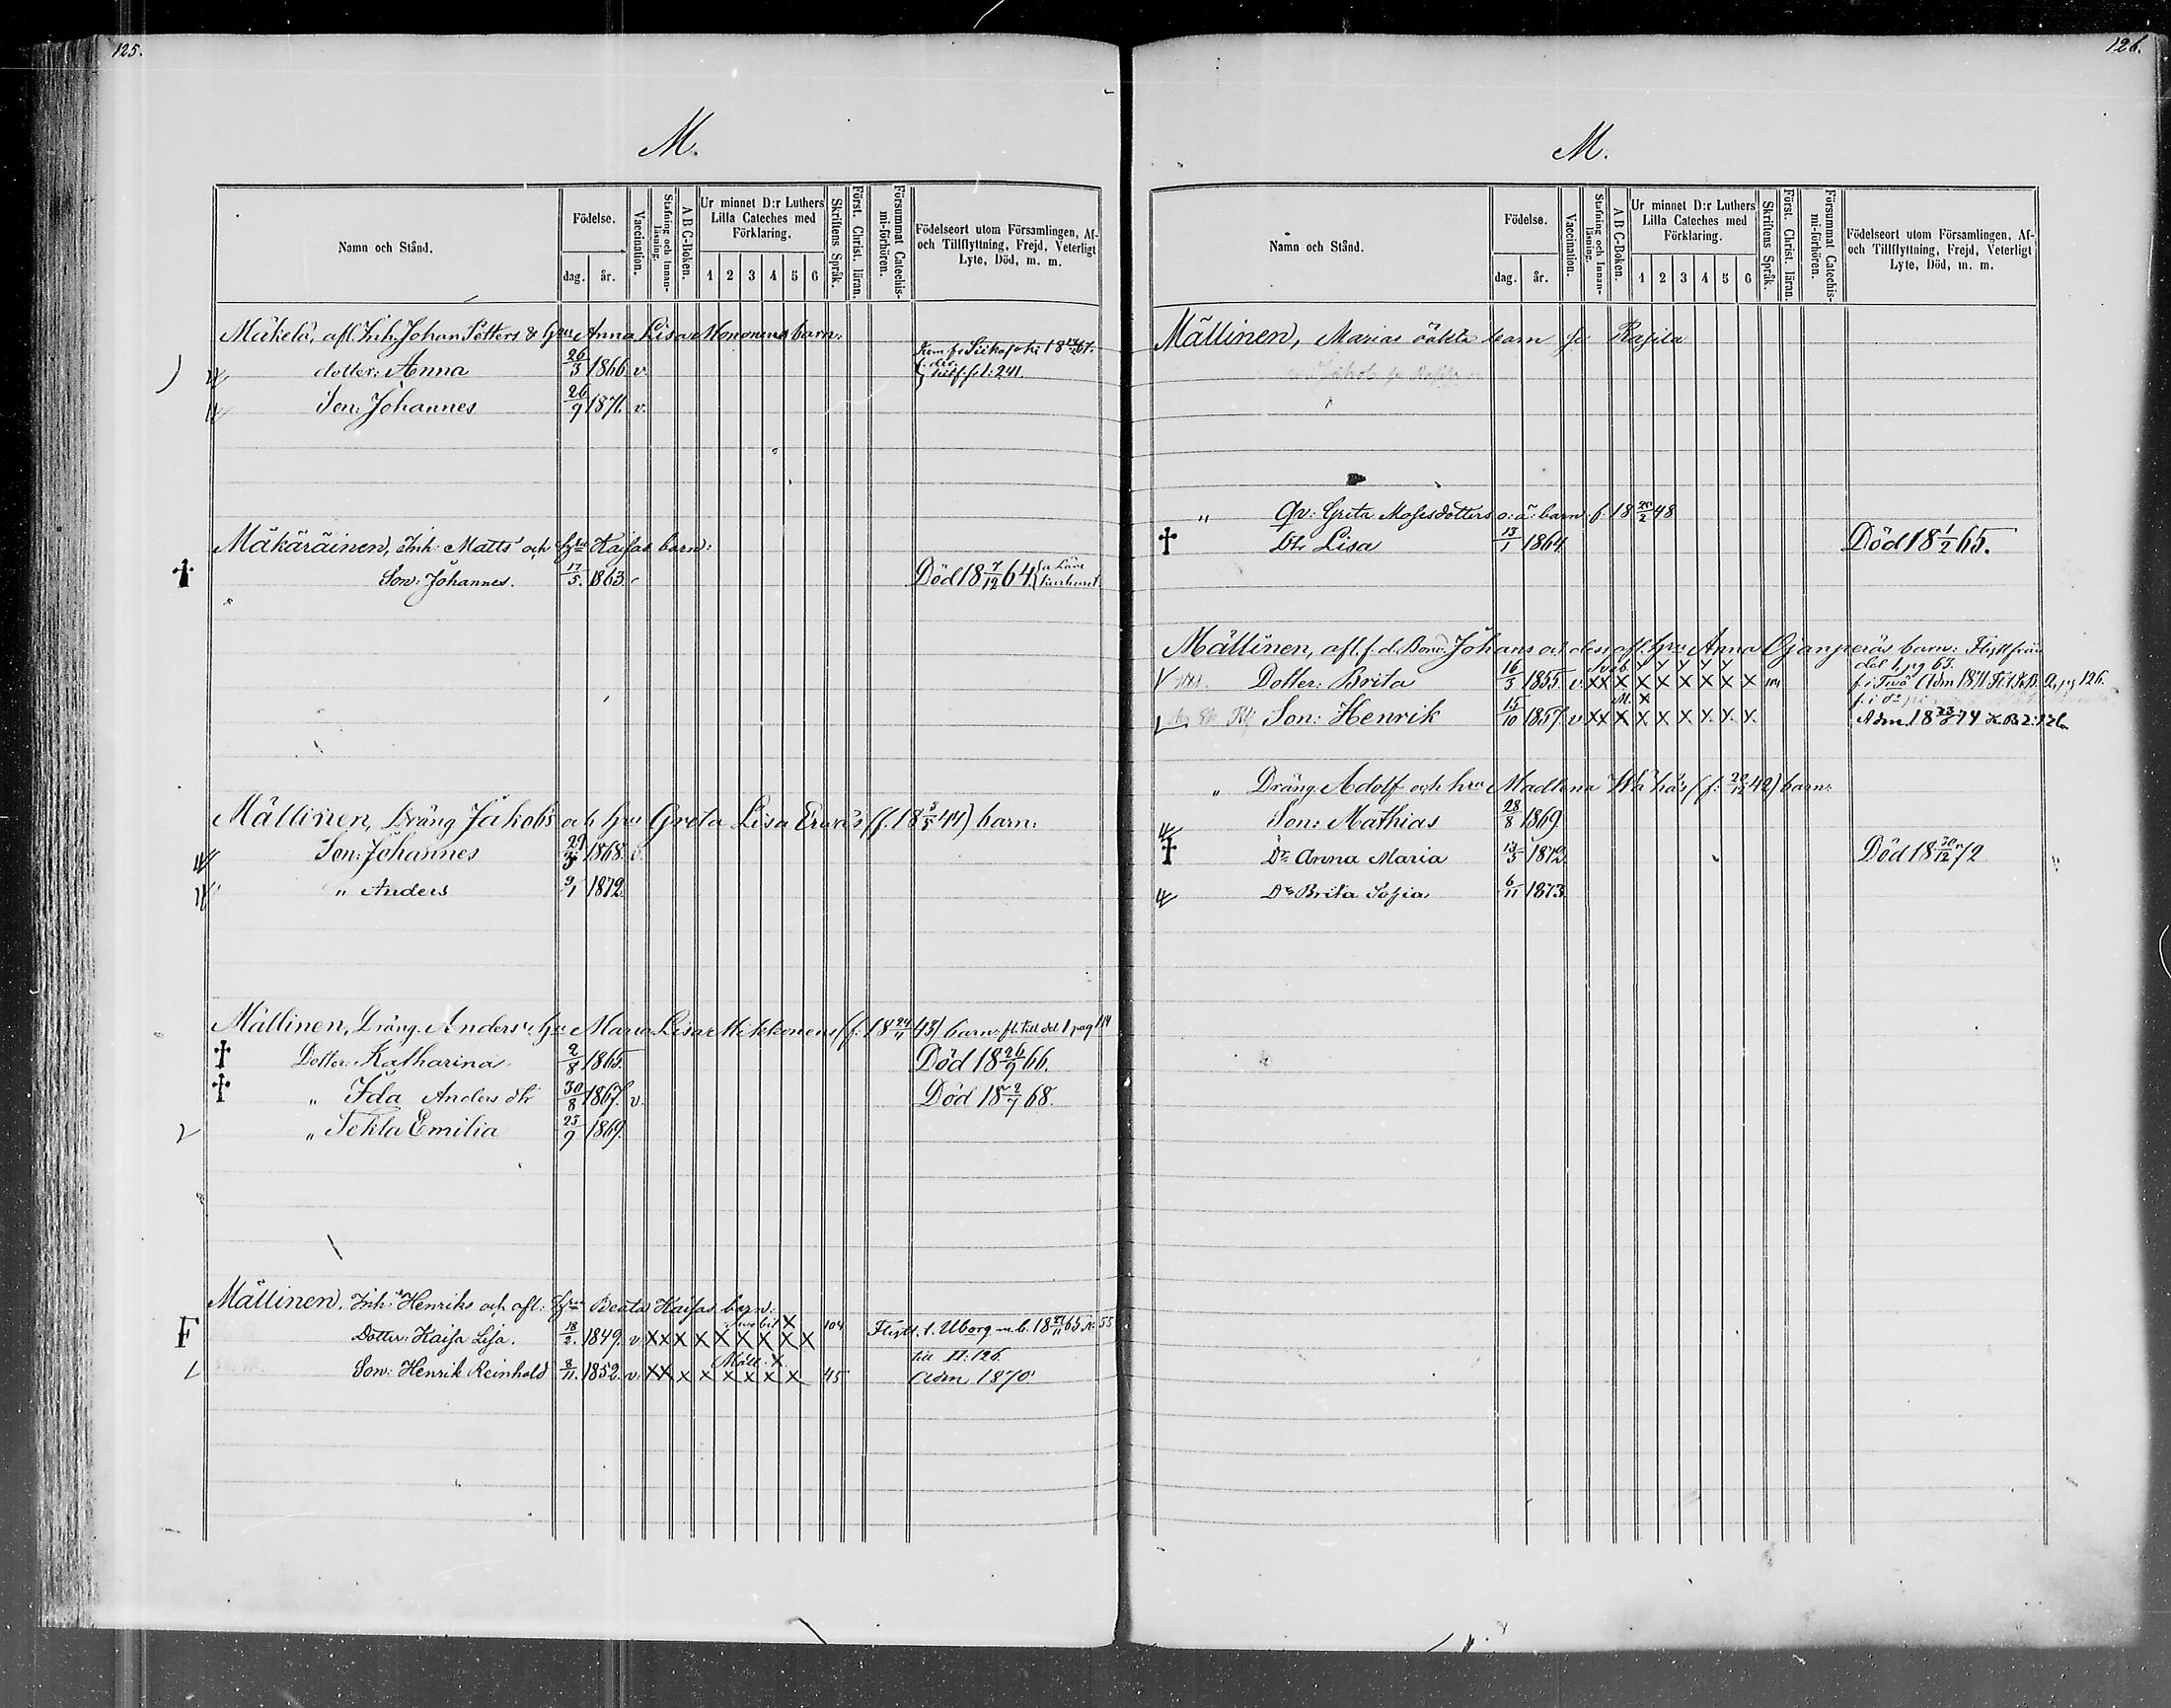 125.
M.
Namn och Stånd.
Födelse.
dag.
år.
Vaccination.
Stafning och Innan-läsning.
A B C-Boken.
Ur minnet D:r Luthers Lilla Cateches med Förklaring.
1 2 3 4 5 6
Skriftens Språk.
Först. Christ. läran.
Försummat Catechis-mi-förhören.
Födelseort utom Församlingen, Af- och Tillflyttning, Frejd, Veterligt Lyte, Död, m. m.
Mäkelä, afl. Inh. Johan Petters & hru Anna Lisa Mononens barn:
dotter: Anna 26/3 1866 v.
Son: Johannes 26/9 1871. v.
Mäkäräinen, Inh: Matts och hru Kaisas barn:
Son: Johannes. 17/5. 1863 Död 18 7/12 64
Mällinen, Dräng Jakobs och hru Greta Lisa Ervas (f. 18 5/5 44) barn:
Son: Johannes 1868. v.
" Anders 9/1 1872.
Mällinen, Dräng Anders o. hru Maria Lisa Mikkonens (f. 18 24/11 43) barn: fl. till del 1 pag 114
Dotter: Katharina 2/8 1865. Död 18 26/9 66.
" Ida Anders dtr 30/8 1867. v. Död 18 2/7 68.
" Tekla Emilia 23/9 1869.
Mällinen. Inh: Henriks och afl: hru Beata Kaisas barn:
F Dotter: Kaisa Lisa. 18/2. 1849. v XX X X X X X X X 104 Flytt. t. Uborg m. b. 18 24/11 65 N: 55
till II: 126.
Son: Henrik Reinhold 8/11. 1852. v. XX X X X X X X 45 Adm 1870.
126.
M.
Namn och Stånd.
Födelse.
dag.
år.
Vaccination.
Stafning och Innan-läsning.
A B C-Boken.
Ur minnet D:r Luthers Lilla Cateches med Förklaring.
1 2 3 4 5 6
Skriftens Språk.
Först. Christ. läran.
Försummat Catechis-mi-förhören.
Födelseort utom Församlingen, Af- och Tillflyttning, Frejd, Veterligt Lyte, Död, m. m.
Mällinen, Marias oäkta barn
" Qv: Greta Mosisdotters o: ä: barn f. 18 20/2 48
Dtr Lisa 13/1 1864 Död 18 1/2 65.
Mällinen, afl. f. d. Bond. Johans och dess afl. hru Anna Ojanperäs barn: Flytt från
del 1, pg 63.
Dotter: Brita 16/3 1855. v XX X X X X X X X 104 Adm 1871 pg 126.
Son: Henrik 15/10 1857. v XX X X X X X X. X.
Adm. 18 23/6 74 K.B 2: 126
" Dräng Adolf och hru Madlena (f: 22/12 42) barn:
Son: Mathias 28/8 1869.
Dr Anna Maria 13/3 1872. Död 18 30/12 72
Dr Brita Sofia 6/11 1873.